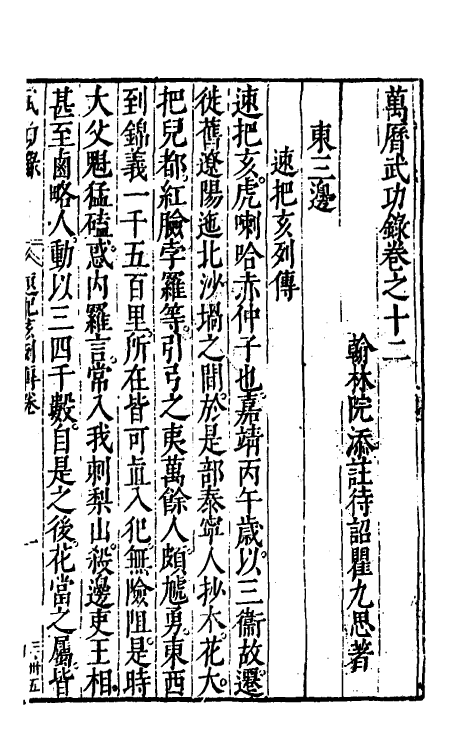 萬曆武功錄卷之十二
翰林院添註待詔瞿九思著
東三邊
速把亥列傳
速把亥虎喇哈赤仲子也嘉靖丙午歲以三衞故遷
徙舊遼陽迤北沙堝之間於是部泰寧人抄木花大
把兒都紅臉孛羅等引弓之夷萬餘人頗虓勇東西
到錦義一千五百里所在皆可直入犯無險阻是時
大父魁猛磕惑內羅言常入我刺梨山殺邊吏王相
甚至鹵略人動以三四千數自是之後花當之屬皆
武功錄 速把亥列傳卷 一 三·卅五